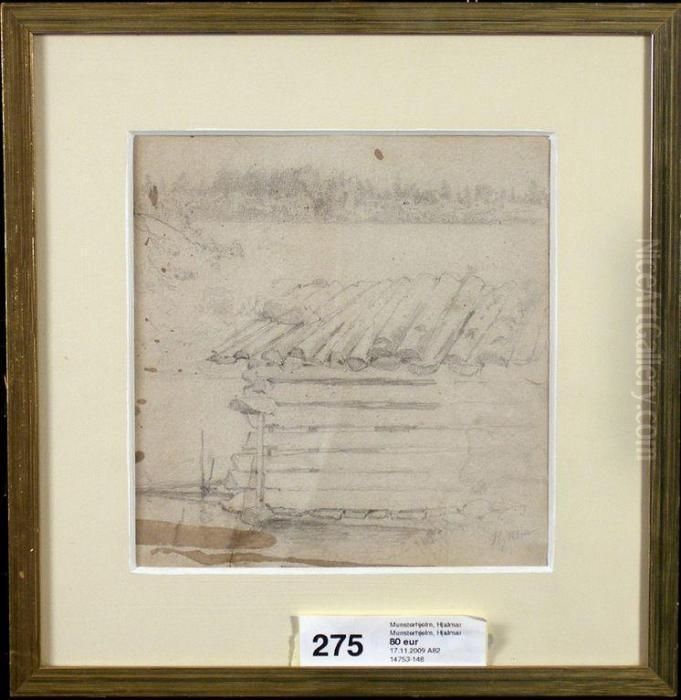 NiceArtGallery.com
275
Munsterhjelm, Hjalmar
Munsterhjelm, Hjalmar
80 eur
17.11.2009 A82
14753-148